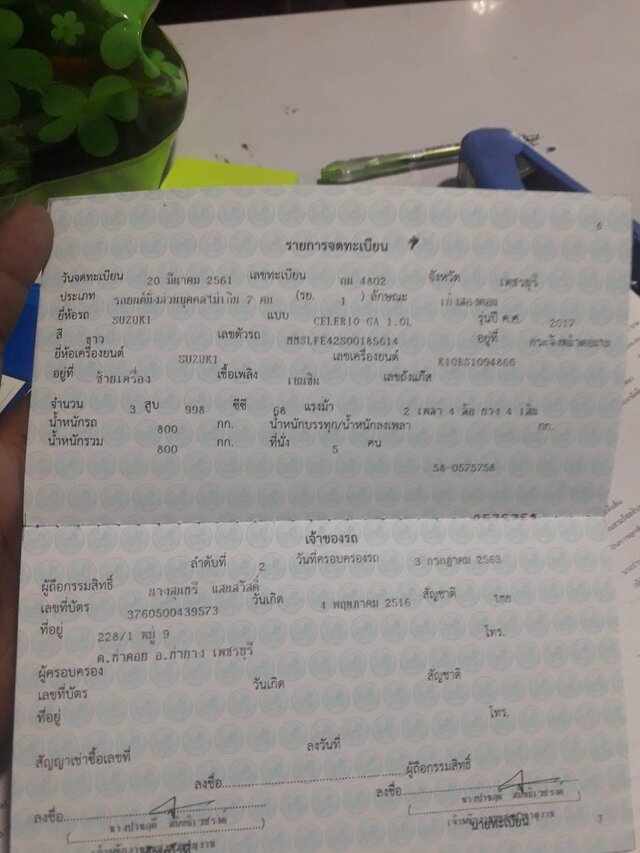 6
รายการจดทะเบียน
วันจดทะเบียน 20 มีนาคม 2561 เลขทะเบียน กน 4802 จังหวัด เพชรบุรี
ประเภท รถยนต์นั่งส่วนบุคคลไม่เกิน 7 คน (รย. 1 ) ลักษณะ เก๋งสองตอน
ยี่ห้อรถ SUZUKI แบบ CELERIO GA 1.0L รุ่นปี ค.ศ. 2017
สี ขาว เลขตัวรถ MMSLFE42S00185614 อยู่ที่
ยี่ห้อเครื่องยนต์ SUZUKI เลขเครื่องยนต์ K10BS1094866
อยู่ที่ ซ้ายเครื่อง เชื้อเพลิง เบนซิน เลขถังแก๊ส
จำนวน 3 สูบ 998 ซีซี 68 แรงม้า 2 เพลา 4 ล้อ ยาง 4 เส้น
น้ำหนักรถ 800 กก. น้ำหนักบรรทุก/น้ำหนักลงเพลา กก.
น้ำหนักรวม 800 กก. ที่นั่ง 5 คน
58-0575758
เจ้าของรถ
ลำดับที่ 2 วันที่ครอบครองรถ 3 กรกฎาคม 2563
ผู้ถือกรรมสิทธิ์ นางสุนทรี แสนสวัสดิ์
เลขที่บัตร 3760500439573 วันเกิด 4 พฤษภาคม 2516 สัญชาติ ไทย
ที่อยู่ 228/1 หมู่ 9 โทร.
ต.ท่าคอย อ.ท่ายาง เพชรบุรี
ผู้ครอบครอง
เลขที่บัตร วันเกิด สัญชาติ
ที่อยู่ โทร.
สัญญาเช่าซื้อเลขที่ ลงวันที่
ลงชื่อ ผู้ถือกรรมสิทธิ์
ลงชื่อ ลงชื่อ
นายทะเบียน 7